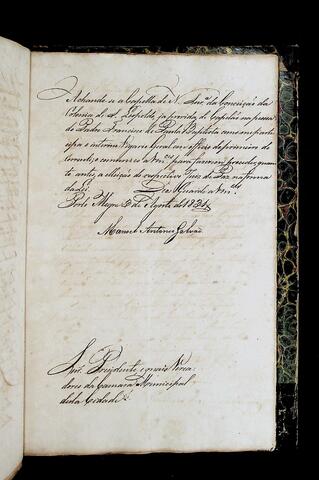 Achando-se a Capella de N. Snrª da Conceição da
Colonia de S. Leopoldo, ja provida de Capelão na pessoa
do Padre Francisco de Paula Baptista como me parte
cipa o interino Vigario Geral em officio do primeiro do
corrente; e cumbre a Vmces fazerem proceder, quan
to antes, a eleição do respectivo Juis de Paz na forma
da lei. Deos Guarde a Vmces
Porto Alegre 3 de Agosto de 1831
Manoel Antonio Galvão
Snr. Presidente, e mais Verea
dores da Camara Municipal
desta Cidade